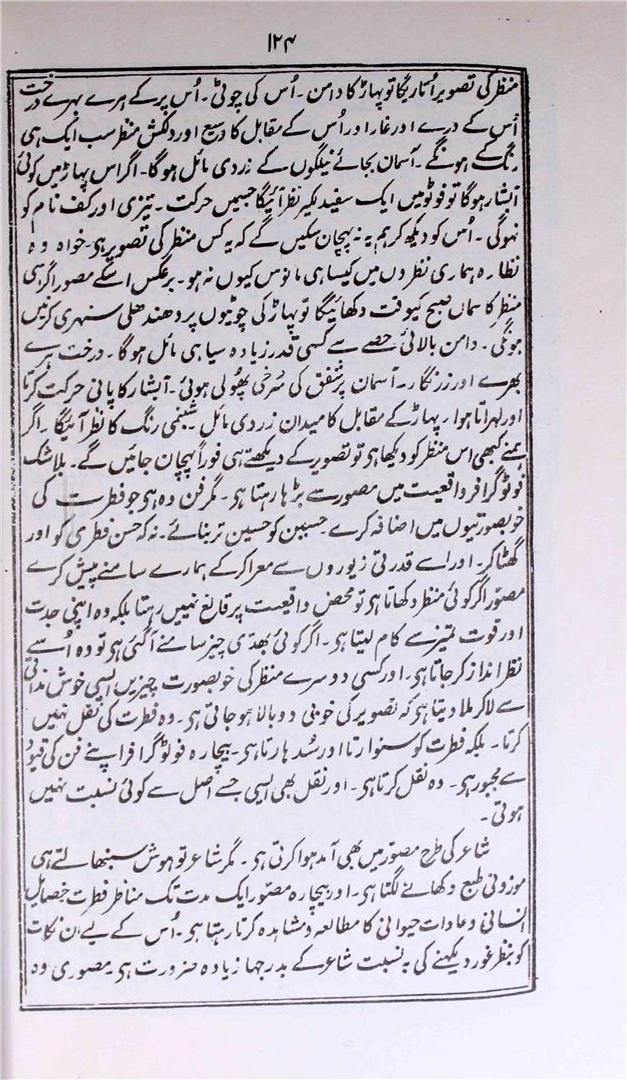 ۱۲۴
منظر کی تصویر اُتاریگا تو پہاڑ کا دامن۔ اُس کی چوٹی۔ اُس پر کے ہرے بہرے درخت
اُس کے درے اور غار اور اُس کے مقابل کا وسیع اور دلکش منظر سب ایک ہی
رنگ کے ہونگے۔ آسمان بجائے نیلگوں کے زردی مائل ہوگا۔ اگر اس پہاڑ میں کوئی
آبشار ہوگا تو فوٹو میں ایک سفید لکیر نظر آئیگا جسمیں حرکت۔ تیزی اور کف نام کو
نہوگی۔ اُس کو دیکھ کر ہم یہ نہ پہچان سکیں گے کہ یہ کس منظر کی تصویر ہی خواہ وہ
نظارہ ہماری نظروں میں کیسا ہی مانوس کیوں نہ ہو۔ برعکس اسکے مصور اگر اسی
منظر کا سماں صبح کیوقت دکھائیگا تو پہاڑ کی چوٹیوں پر دھندھلی سنہری کرنیں
ہونگی۔ دامن بالائی حصے سے کسی قدر زیادہ سیاہی مائل ہوگا۔ درخت ہرے
بھرے اور زرنگار۔ آسمان پر شفق کی سُرخی پھولی ہوئی۔ آبشار کا پانی حرکت کرتا
اور لہراتا ہوا۔ پہاڑ کے مقابل کا میدان زردی مائل شبنمی رنگ کا نظر آئیگا۔ اگر
ہمنے کبھی اس منظر کو دیکھا ہو تو تصویر کے دیکھتے ہی فوراً پہچان جائیں گے۔ بلاشک
فوٹوگرافر واقعیت میں مصور سے بڑہا رہتا ہی۔ مگر فن وہ ہی جو فطرت کی
خوبصورتیوں میں اضافہ کرے۔ حسین کو حسین تر بنائے۔ نہ کہ حسن فطری کو اور
گھٹا کر۔ اور اسے قدرتی زیوروں سے معرا کرکے ہمارے سامنے پیش کرے
مصوّر اگر کوئی منظر دکھاتا ہی تو محض واقعیت پر قانع نہیں رہتا بلکہ وہ اپنی جدت
اور قوت تمیز سے کام لیتا ہی۔ اگر کوئی بھدّی چیز سامنے آگئی ہو تو وہ اُسے
نظر انداز کر جاتا ہی۔ اور کسی دوسرے منظر کی خوبصورت چیزیں ایسی خوش مذاقی
سے لا کر ملا دیتا ہی کہ تصویر کی خوبی دوبالا ہو جاتی ہی۔ وہ فطرت کی نقل نہیں
کرتا۔ بلکہ فطرت کو سنوارتا اور سُدہارتا ہی۔ بیچارہ فوٹوگرافر اپنے فن کی قیود
سے مجبور ہی۔ وہ نقل کرتا ہی۔ اور نقل بھی ایسی جسے اصل سے کوئی نسبت نہیں
ہوتی۔
شاعر کی طرح مصوّر میں بھی آمد ہوا کرتی ہی۔ مگر شاعر تو ہوش سنبھالتے ہی
موزونی طبع دکھانے لگتا ہی۔ اور بیچارہ مصوّر ایک مدت تک مناظر فطرت خصایل
انسانی و عادات حیوانی کا مطالعہ و مشاہدہ کرتا رہتا ہی۔ اُس کے لیے ان نکات
کو بنظر غور دیکہنے کی بہ نسبت شاعر کے بدرجہا زیادہ ضرورت ہی مصوری وہ